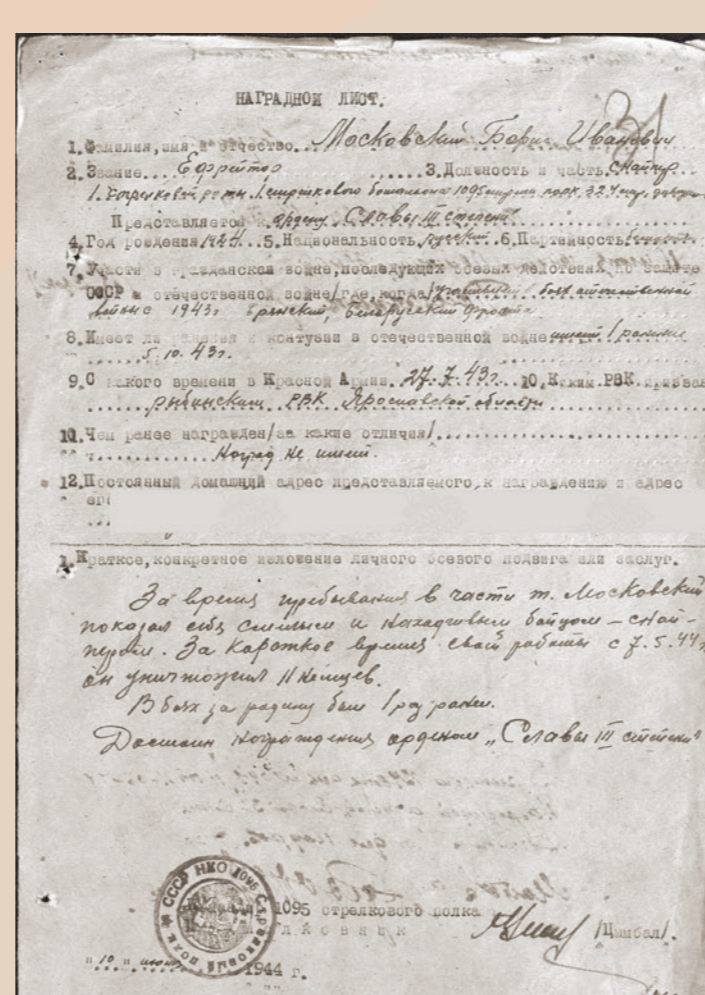 НАГРАДНОЙ ЛИСТ.
1. Фамилия, имя и отчество... Московский Борис Иванович
2. Звание... Ефрейтор ...... 3. Должность и часть снайпер
1 стрелковой роты 1 стрелкового батальона 1095 стрелк. полк. 324
Представляется к ордену „Славы III степени"
4. Год рождения 1924... 5. Национальность русский.. 6. Партийность
7. Участи в гражданской войне, последующих боевых действиях по защите
СССР и отечественной войне/где, когда/ боях отечественной
войны с 1943г Брянский, Белорусский фронта.
8. Имеет ли ранения и контузии в отечественной войне имеет 1 ранение
...... 5.10.43г.
9. С какого времени в Красной Армии. 27.7.43г... 10. Каким РВК призван
...... Рыбинским РВК Ярославской области
10. Чем ранее награжден/за какие отличия/..................
............ Наград не имеет.
12. Постоянный домашний адрес представляемого, к награждению и адрес
ег
...
1. Краткое, конкретное изложение личного боевого подвига или заслуг.
За время пребывания в части т. Московский
показал себя смелым и находчивым бойцом – снай-
пером. За короткое время своей работы с 7.5.44г
он уничтожил 11 немцев.
В боях за родину был 1 раз ранен.
Достоин награждения орденом „Славы III степени"
СССР НКО 1095 Стрелковый полк
1095 стрелкового полка
полковник /Цимбал/.
"10" июня 1944 г.